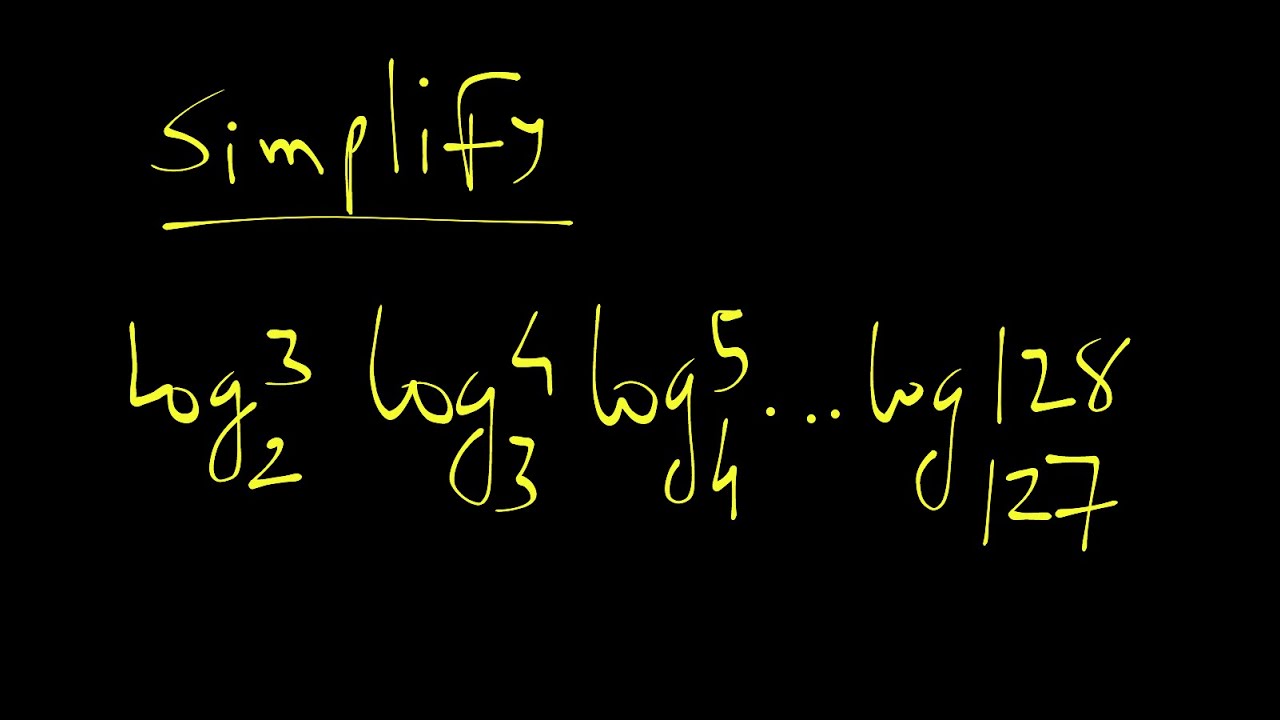 Simplify
log₂3 log₃4 log₄5 ... log₁₂₇128